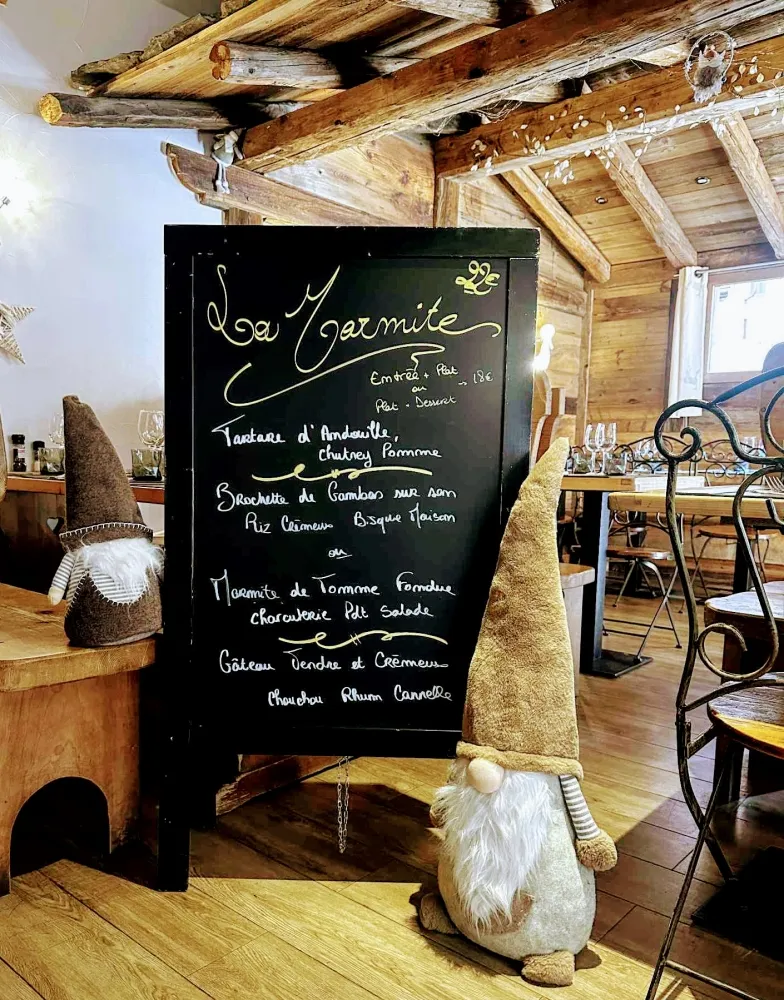 22€
La Marmite
Entrée + Plat
ou → 18€
Plat + Dessert
Tartare d'Andouille,
chutney Pomme
Brochette de Gambas sur son
Riz Crémeux Bisque Maison
ou
Marmite de Tomme Fondue
charcuterie Pdt Salade
Gâteau Tendre et Crémeux
Chouchou Rhum Cannelle